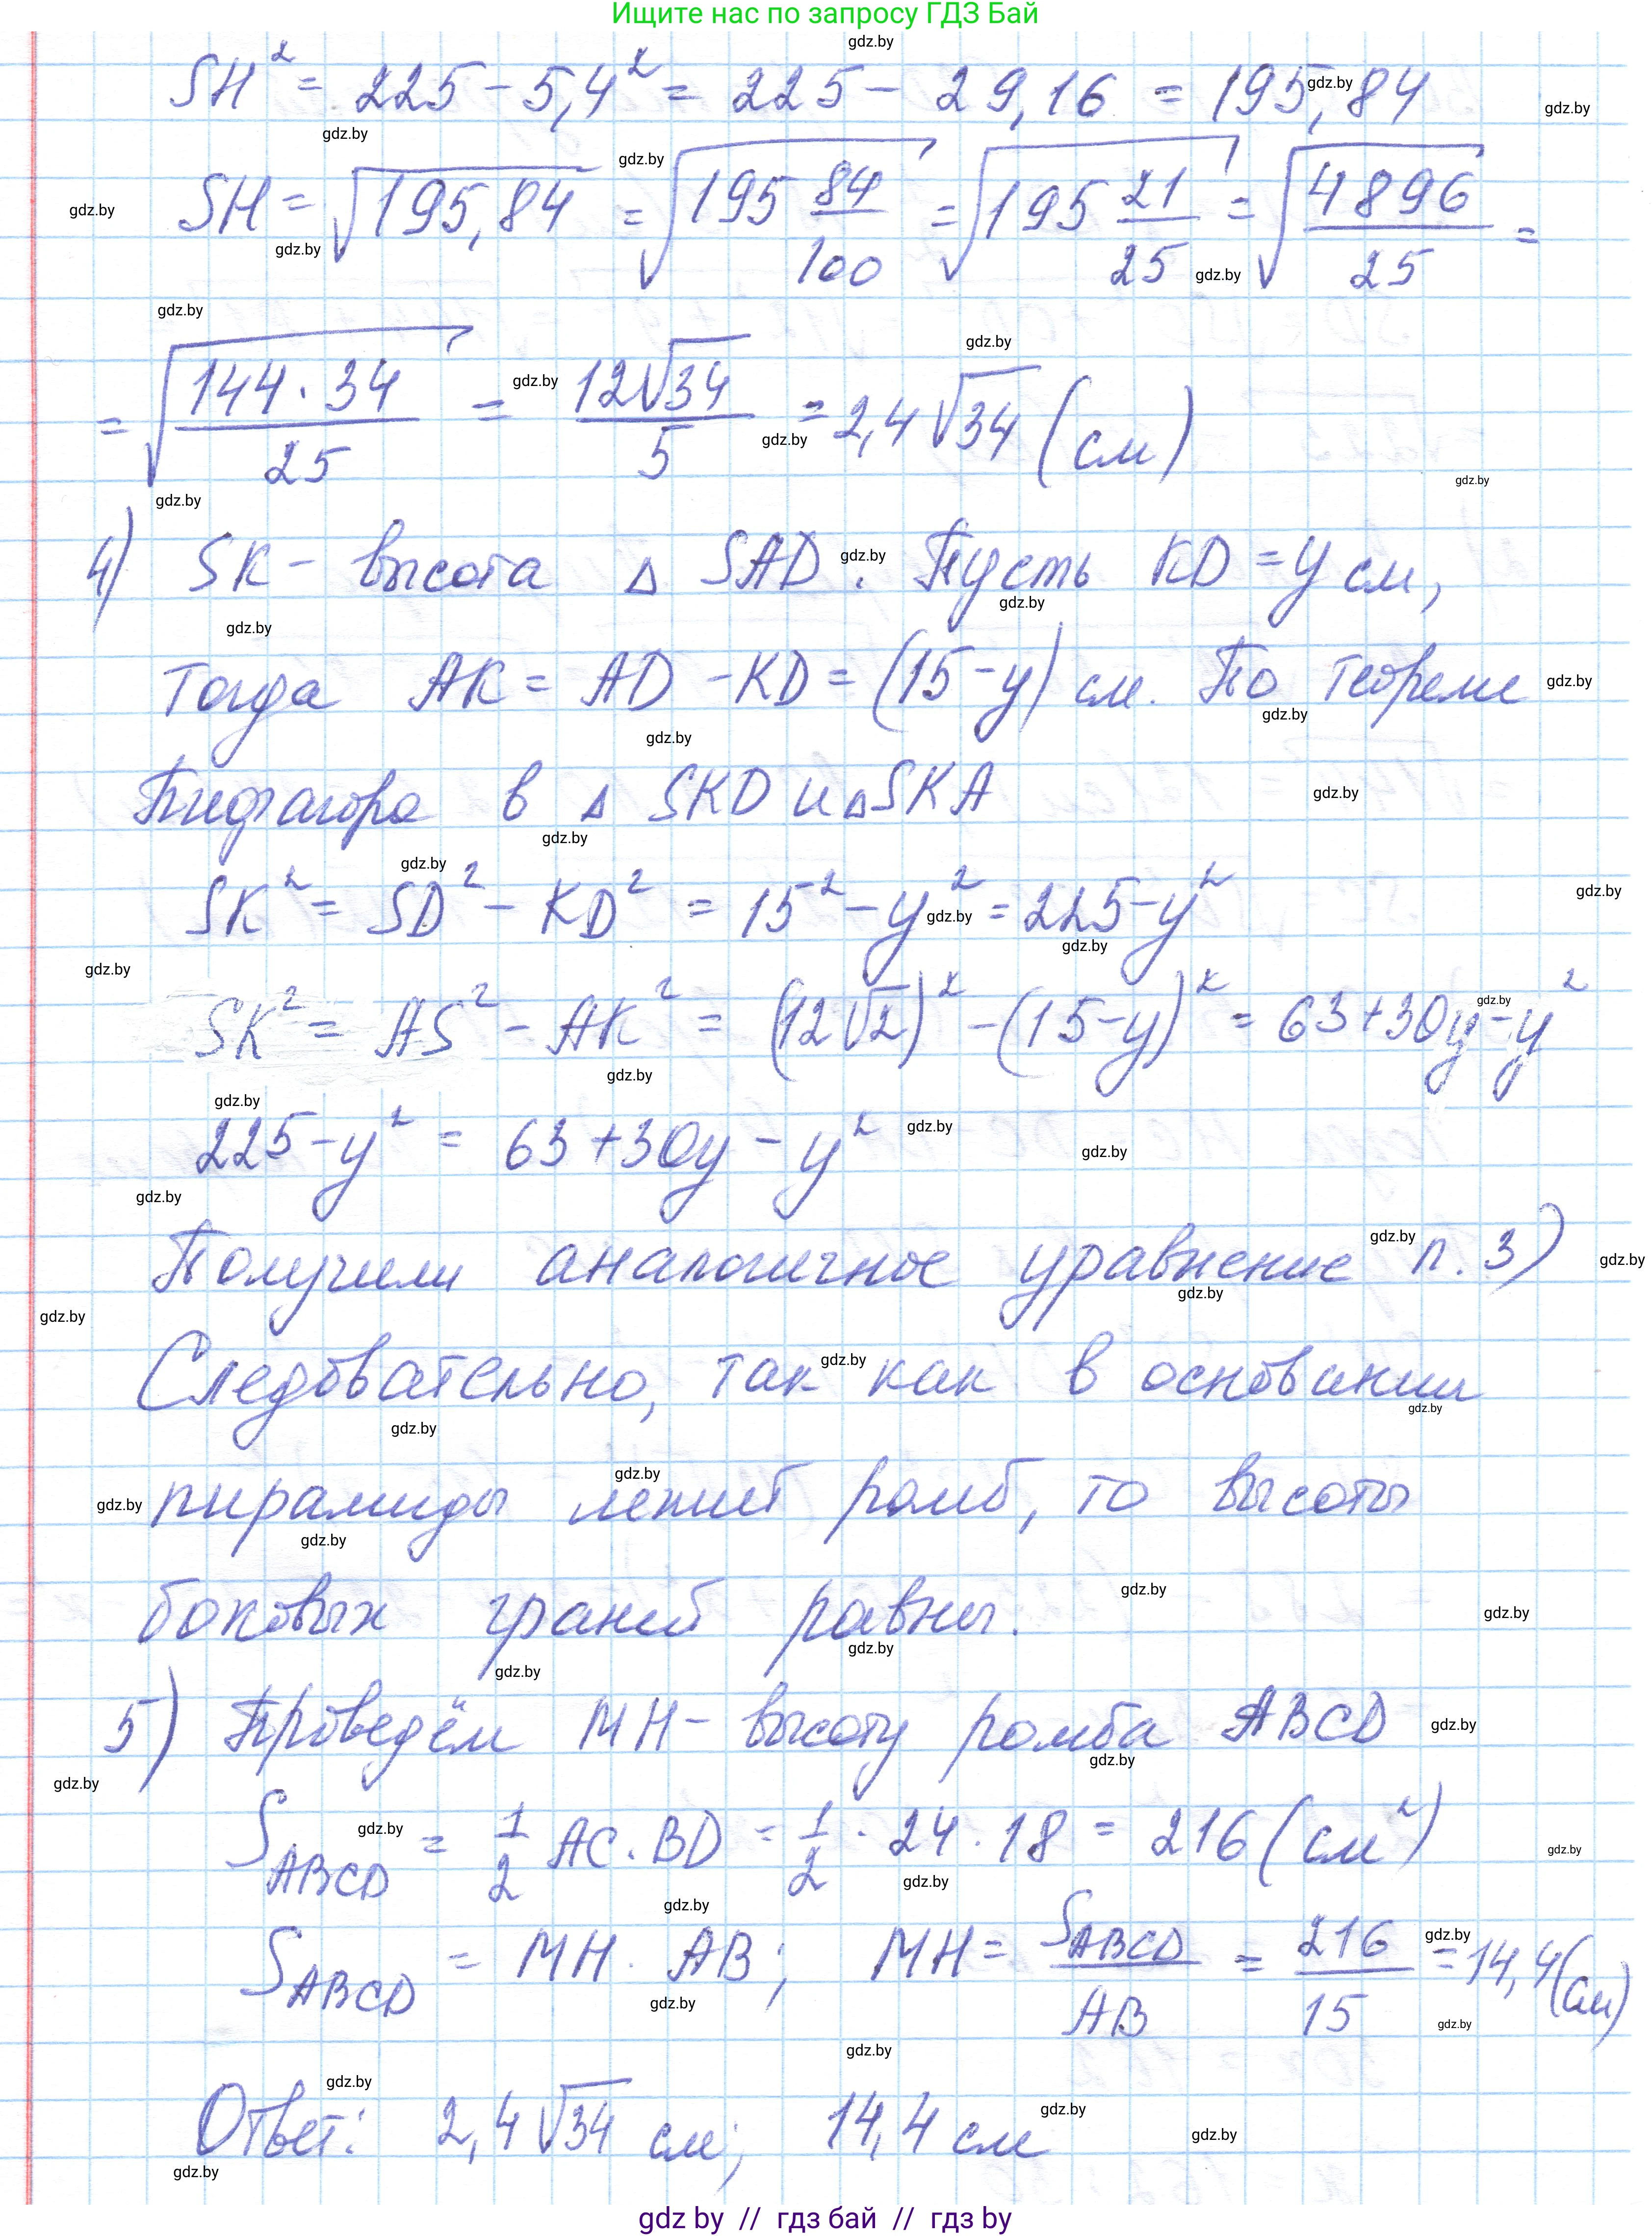 Ищите нас по запросу ГДЗ Бай
SH² = 225 - 5,4² = 225 - 29,16 = 195,84
SH = √195,84 = √195 84/100 = √195 21/25 = √4896/25 =
= √144·34/25 = 12√34/5 = 2,4√34 (см)
4) SK - высота Δ SAD. Пусть KD = y см,
тогда AK = AD - KD = (15-y) см. По теореме
Пифагора в Δ SKD и Δ SKA
SK² = SD² - KD² = 15² - y² = 225 - y²
SK² = AS² - AK² = (12√2)² - (15-y)² = 63+30y-y²
225 - y² = 63+30y - y²
Получили аналогичное уравнение п. 3)
Следовательно, так как в основании
пирамиды лежит ромб, то высоты
боковых граней равны.
5) Проведём MH - высоту ромба ABCD
S ABCD = 1/2 AC · BD = 1/2 · 24 · 18 = 216 (см²)
S ABCD = MH · AB; MH = S ABCD/AB = 216/15 = 14,4 (см)
Ответ: 2,4√34 см; 14,4 см
gdz by // гдз бай // гдз by